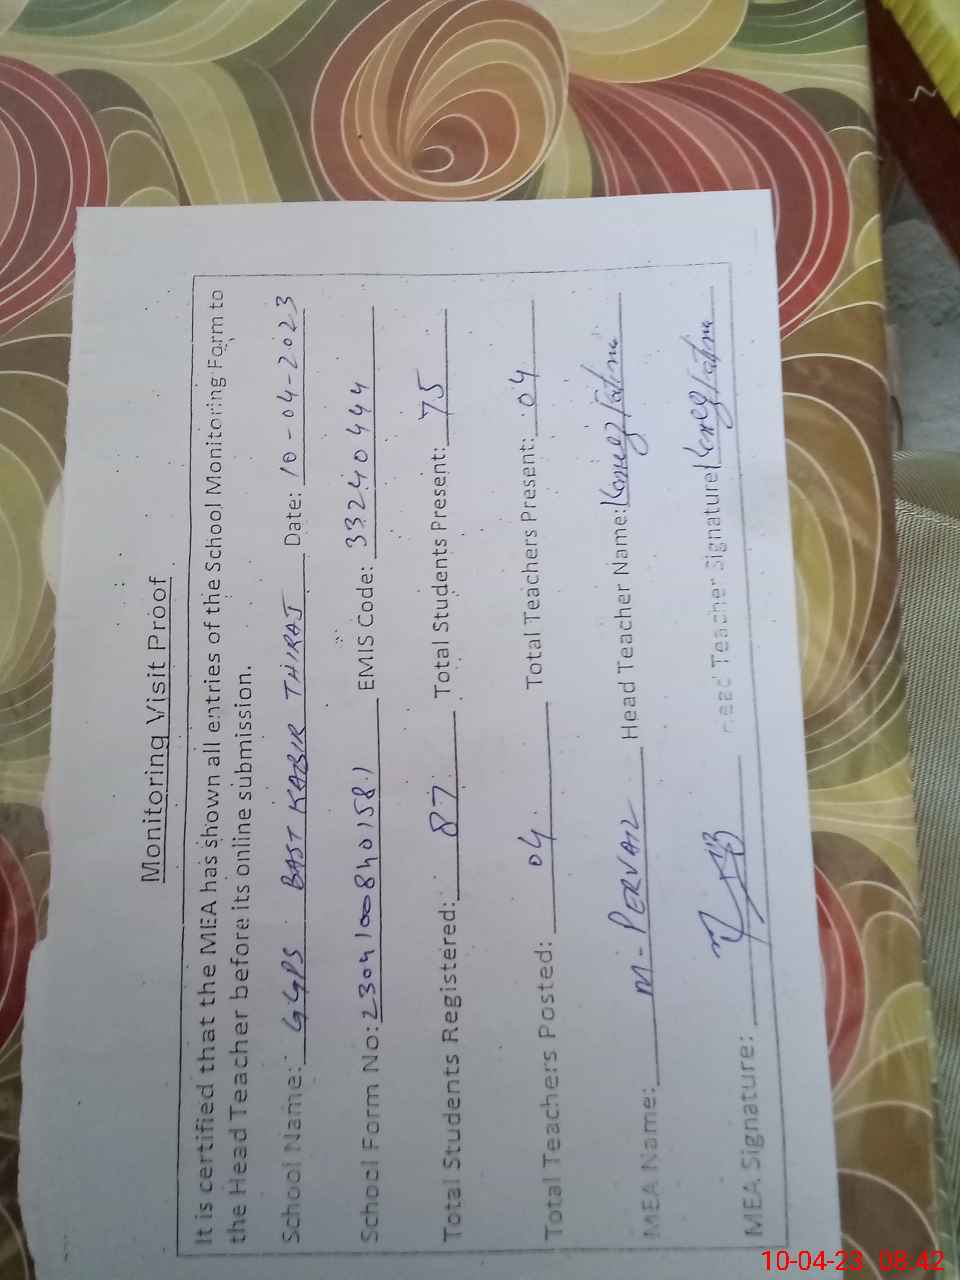 Monitoring Visit Proof
It is certified that the MEA has shown all entries of the School Monitoring Form to
the Head Teacher before its online submission.
School Name: GGPS BAST KABIR THIRAJ Date: 10-04-2023
School Form No: 2304100840158.1 EMIS Code: 33240444
Total Students Registered: 87 Total Students Present: 75
Total Teachers Posted: 04 Total Teachers Present: 04
MEA Name: M-PERVAIZ Head Teacher Name:
MEA Signature: Head Teacher Signature
10-04-23 08:42